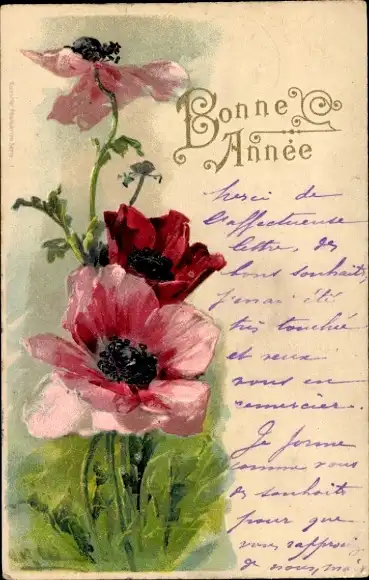 Bonne
Année
Merci de
l'affectueuse
lettre, des
bons souhaits
j'en ai été
très touchée
et veux
vous en
remercier.
Je forme
comme vous
des souhaits
pour que
vous
de nous, ma